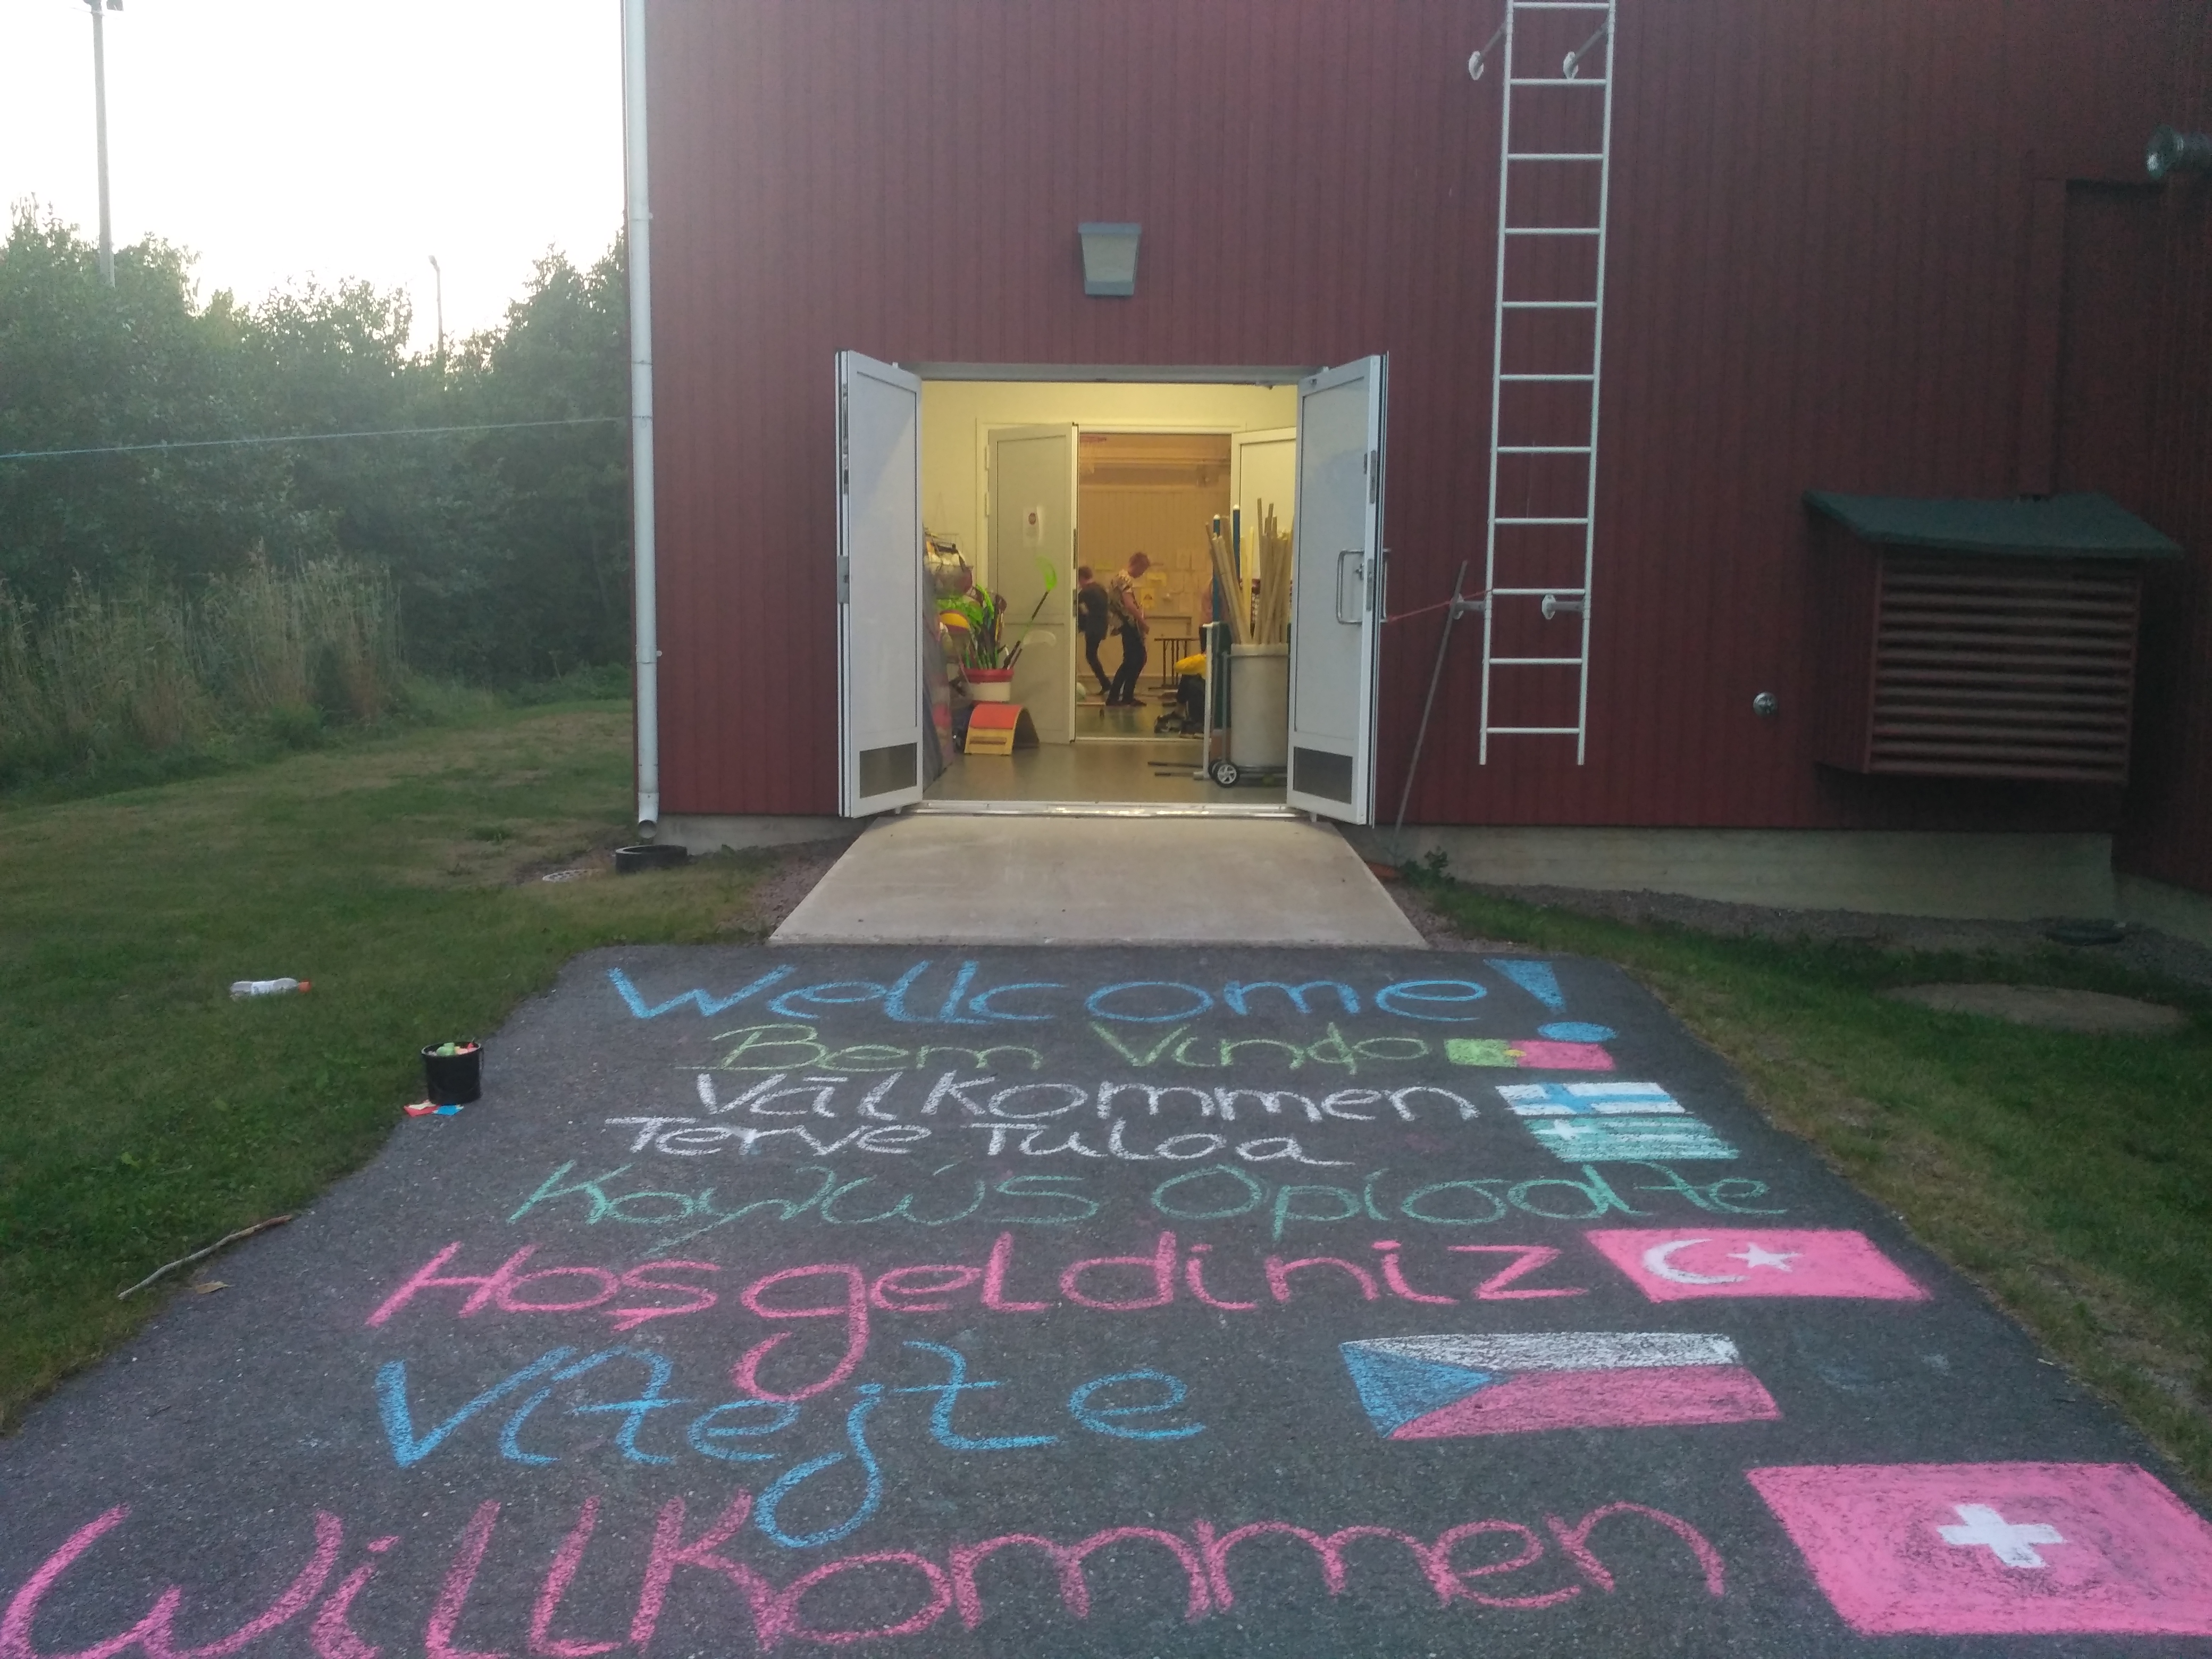 Wellcome!
Bem Vindo
Välkommen
Terve Tuloa
Hoşgeldiniz
Vítejte
Willkommen